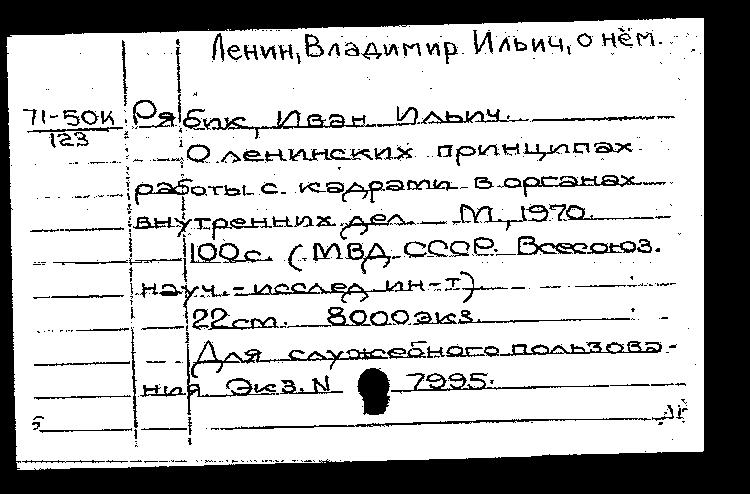 Ленин, Владимир Ильич, о нём.
71-50К Рябик, Иван Ильич.
123
О ленинских принципах
работы с кадрами в органах
внутренних дел. М., 1970.
100с. (МВД СССР. Всесоюз.
науч.-исслед. ин-т).
22см. 8000экз.
Для служебного пользова-
ния Экз. N 7995.